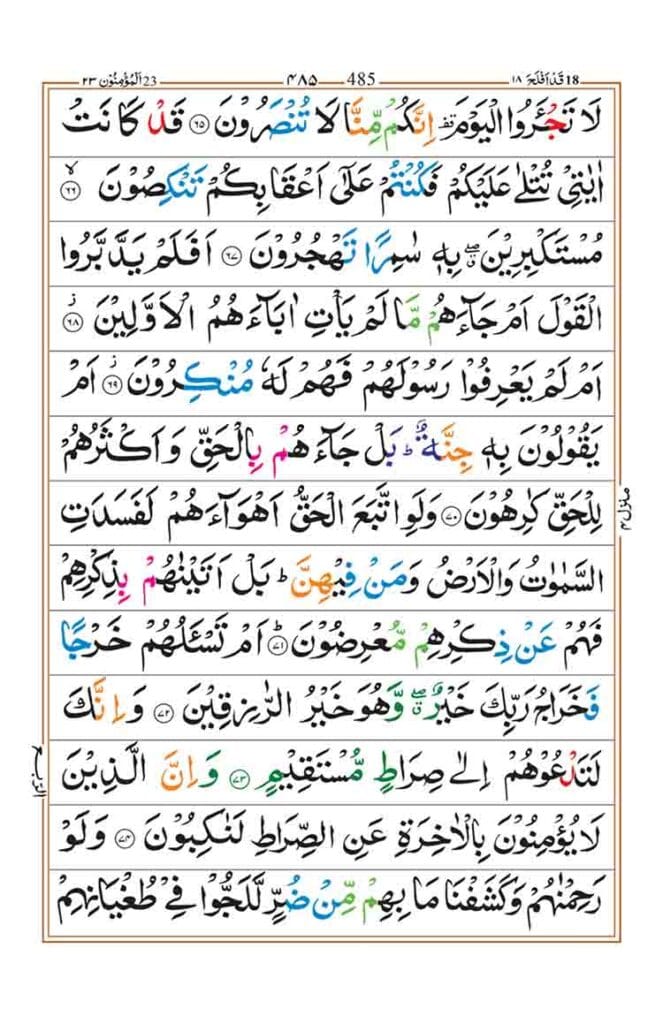 18 قَدْ اَفْلَحَ ١٨ 485 ٤٨٥ 23 اَلْمُؤْمِنُوْن ٢٣
لَا تَجْـَٔرُوا الْيَوْمَ ۫ اِنَّكُمْ مِّنَّا لَا تُنْصَرُوْنَ ﴿٦٥﴾ قَدْ كَانَتْ
اٰيٰتِيْ تُتْلٰى عَلَيْكُمْ فَكُنْتُمْ عَلٰٓى اَعْقَابِكُمْ تَنْكِصُوْنَ ﴿٦٦﴾ۙ
مُسْتَكْبِرِيْنَ ۖ بِهٖ سٰمِرًا تَهْجُرُوْنَ ﴿٦٧﴾ اَفَلَمْ يَدَّبَّرُوا
الْقَوْلَ اَمْ جَآءَهُمْ مَّا لَمْ يَاْتِ اٰبَآءَهُمُ الْاَوَّلِيْنَ ﴿٦٨﴾ز
اَمْ لَمْ يَعْرِفُوْا رَسُوْلَهُمْ فَهُمْ لَهٗ مُنْكِرُوْنَ ﴿٦٩﴾ز اَمْ
يَقُوْلُوْنَ بِهٖ جِنَّةٌ ؕ بَلْ جَآءَهُمْ بِالْحَقِّ وَاَكْثَرُهُمْ
لِلْحَقِّ كٰرِهُوْنَ ﴿٧٠﴾ وَلَوِ اتَّبَعَ الْحَقُّ اَهْوَآءَهُمْ لَفَسَدَتِ
السَّمٰوٰتُ وَالْاَرْضُ وَمَنْ فِيْهِنَّ ؕ بَلْ اَتَيْنٰهُمْ بِذِكْرِهِمْ
فَهُمْ عَنْ ذِكْرِهِمْ مُّعْرِضُوْنَ ﴿٧١﴾ؕ اَمْ تَسْـَٔلُهُمْ خَرْجًا
فَخَرَاجُ رَبِّكَ خَيْرٌ ۖ وَّهُوَ خَيْرُ الرّٰزِقِيْنَ ﴿٧٢﴾ وَاِنَّكَ
لَتَدْعُوْهُمْ اِلٰى صِرَاطٍ مُّسْتَقِيْمٍ ﴿٧٣﴾ وَاِنَّ الَّذِيْنَ
لَا يُؤْمِنُوْنَ بِالْاٰخِرَةِ عَنِ الصِّرَاطِ لَنٰكِبُوْنَ ﴿٧٤﴾ وَلَوْ
رَحِمْنٰهُمْ وَكَشَفْنَا مَا بِهِمْ مِّنْ ضُرٍّ لَّلَجُّوْا فِيْ طُغْيَانِهِمْ
منزل ٤
الربع